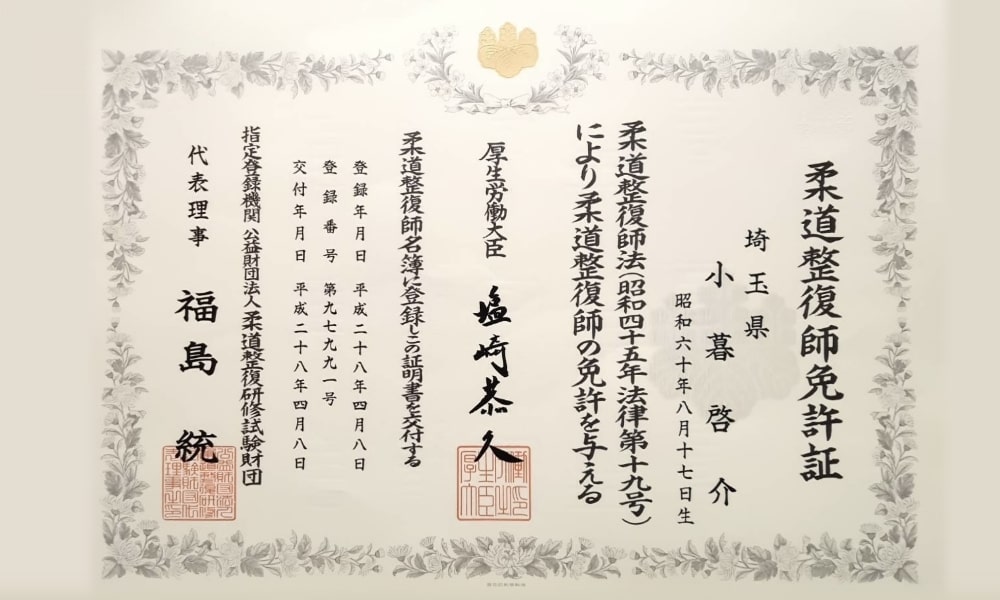 柔道整復師免許証
埼玉県
小暮啓介
昭和六十年八月十七日生
柔道整復師法（昭和四十五年法律第十九号）
により柔道整復師の免許を与える
厚生労働大臣 塩崎恭久
柔道整復師名簿に登録しこの証明書を交付する
登録年月日 平成二十八年四月八日
登録番号 第九七九九一号
交付年月日 平成二十八年四月八日
指定登録機関 公益財団法人柔道整復研修試験財団
代表理事 福島統